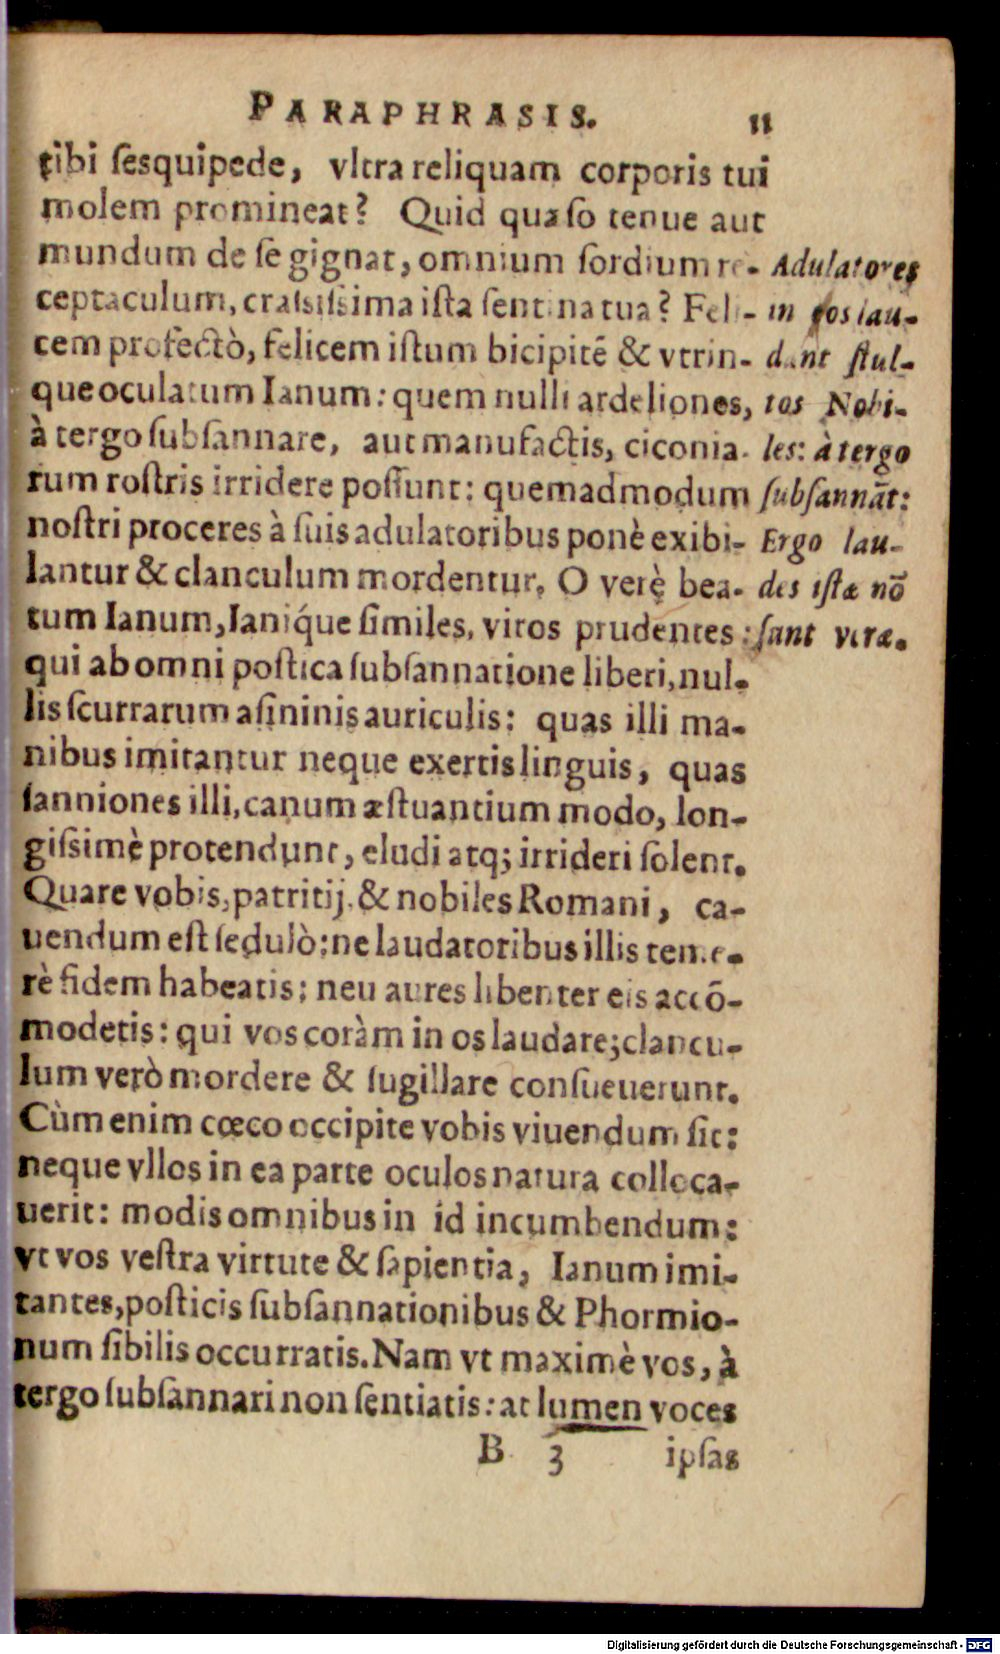 PARAPHRASIS. 11
tibi ſesquipede, vltra reliquam corporis tui
molem promineat? Quid quæſo tenue aut
mundum de ſe gignat, omnium ſordium re-
ceptaculum, craſsiſsima iſta ſentina tua? Feli-
cem profectò, felicem iſtum bicipitē & vtrin-
que oculatum Ianum: quem nulli ardeliones,
à tergo ſubſannare, aut manufactis, ciconia-
rum roſtris irridere poſſunt: quemadmodum
noſtri proceres à ſuis adulatoribus ponè exibi-
lantur & clanculum mordentur. O verè bea-
tum Ianum, Ianiq́ue ſimiles, viros prudentes:
qui ab omni poſtica ſubſannatione liberi, nul-
lis ſcurrarum aſininis auriculis: quas illi ma-
nibus imitantur neque exertis linguis, quas
ſanniones illi, canum æſtuantium modo, lon-
giſsimè protendunt, eludi atq; irrideri ſolent.
Quare vobis, patritij, & nobiles Romani, ca-
uendum eſt ſedulò: ne laudatoribus illis teme-
rè fidem habeatis: neu aures libenter eis accō-
modetis: qui vos coràm in os laudare; clancu-
lum verò mordere & ſugillare conſueuerunt.
Cùm enim cœco occipite vobis viuendum ſit:
neque vllos in ea parte oculos natura colloca-
uerit: modis omnibus in id incumbendum:
vt vos veſtra virtute & ſapientia, Ianum imi-
tantes, poſticis ſubſannationibus & Phormio-
num ſibilis occurratis. Nam vt maximè vos, à
tergo ſubſannari non ſentiatis: at lumen voces
B 3 ipſas
Adulatores
in os lau-
dant ſtul-
tos Nobi-
les: à tergo
ſubſannāt:
Ergo lau-
des iſtæ nō
ſunt veræ.
Digitalisierung gefördert durch die Deutsche Forschungsgemeinschaft - DFG